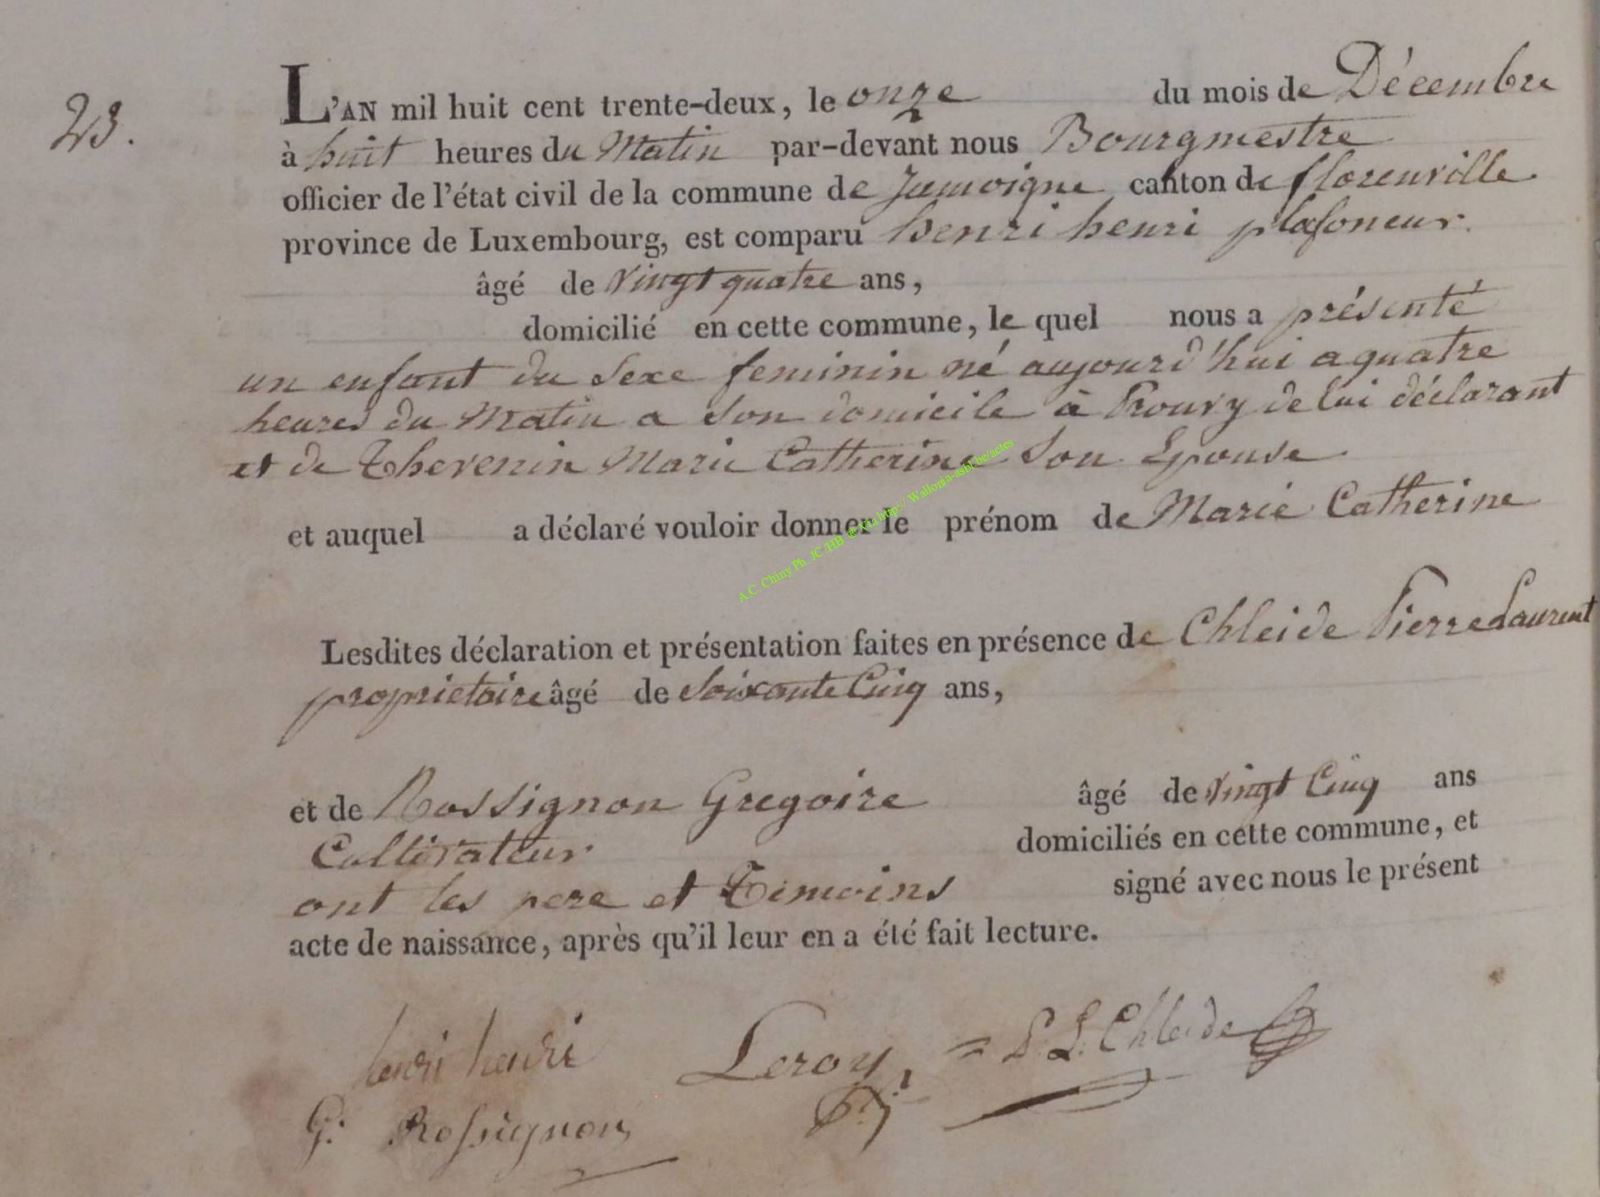 23.
L'AN mil huit cent trente-deux, le onze du mois de Décembre
à huit heures du Matin par-devant nous Bourgmestre
officier de l'état civil de la commune de Jamoigne canton de florenville
province de Luxembourg, est comparu henri henri plafoneur.
âgé de vingt quatre ans,
domicilié en cette commune, le quel nous a présenté
un enfant du sexe feminin né aujourd'hui a quatre
heures du Matin a son domicile à Prouvy de lui déclarant
et de Thevenin Marie Catherine son Epouse
et auquel a déclaré vouloir donner le prénom de Marie Catherine
A.C. Chiny Ph. JC/HB Via http:// Wallonia-asbl.be/actes
Lesdites déclaration et présentation faites en présence de Chleide Pierre Laurent
proprietaire âgé de soixante Cinq ans,
et de Rossignon Gregoire âgé de vingt Cinq ans
Cultivateur domiciliés en cette commune, et
ont les pere et Temoins signé avec nous le présent
acte de naissance, après qu'il leur en a été fait lecture.
henri henri Leroy P. L. Chleide
G. Rossignon